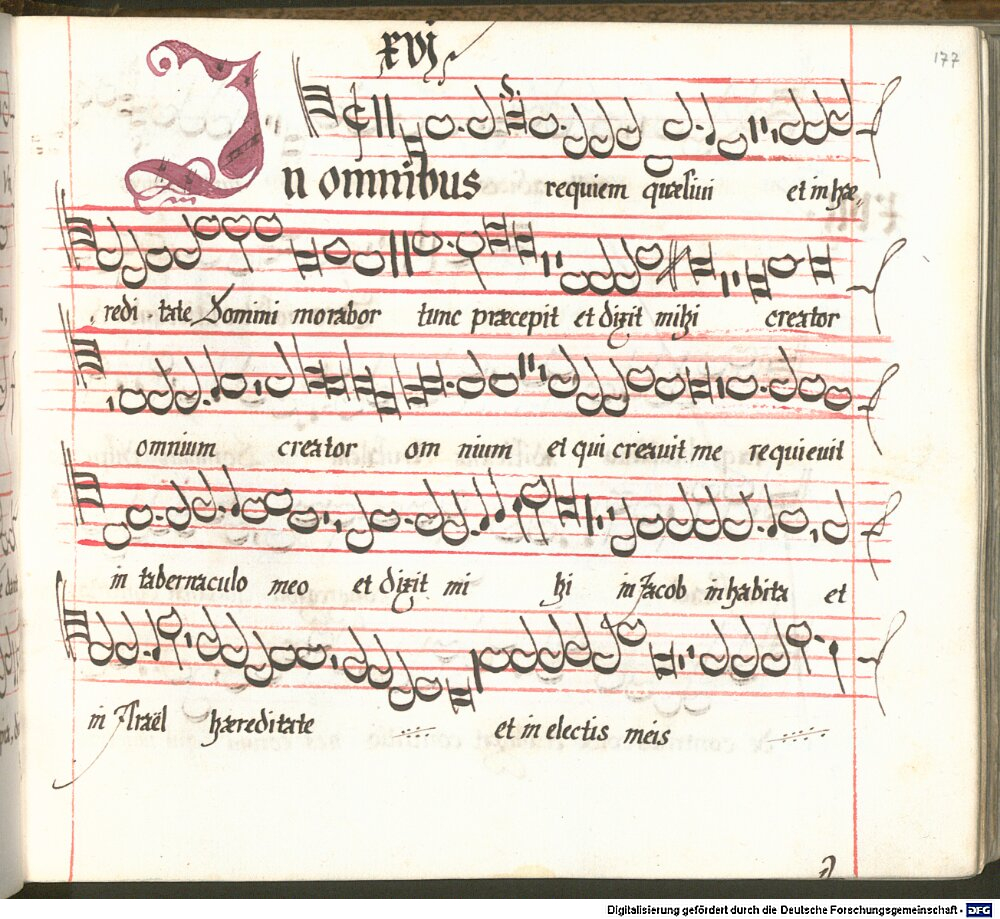 xvj
177
In omnibus requiem quæsiui et in hæ„
redi tate Domini morabor tunc præcepit et dixit mihi creator
omnium creator om nium et qui creauit me requieuit
in tabernaculo meo et dixit mi hi in Jacob inhabita et
in Israël hæreditate et in electis meis
Digitalisierung gefördert durch die Deutsche Forschungsgemeinschaft - DFG